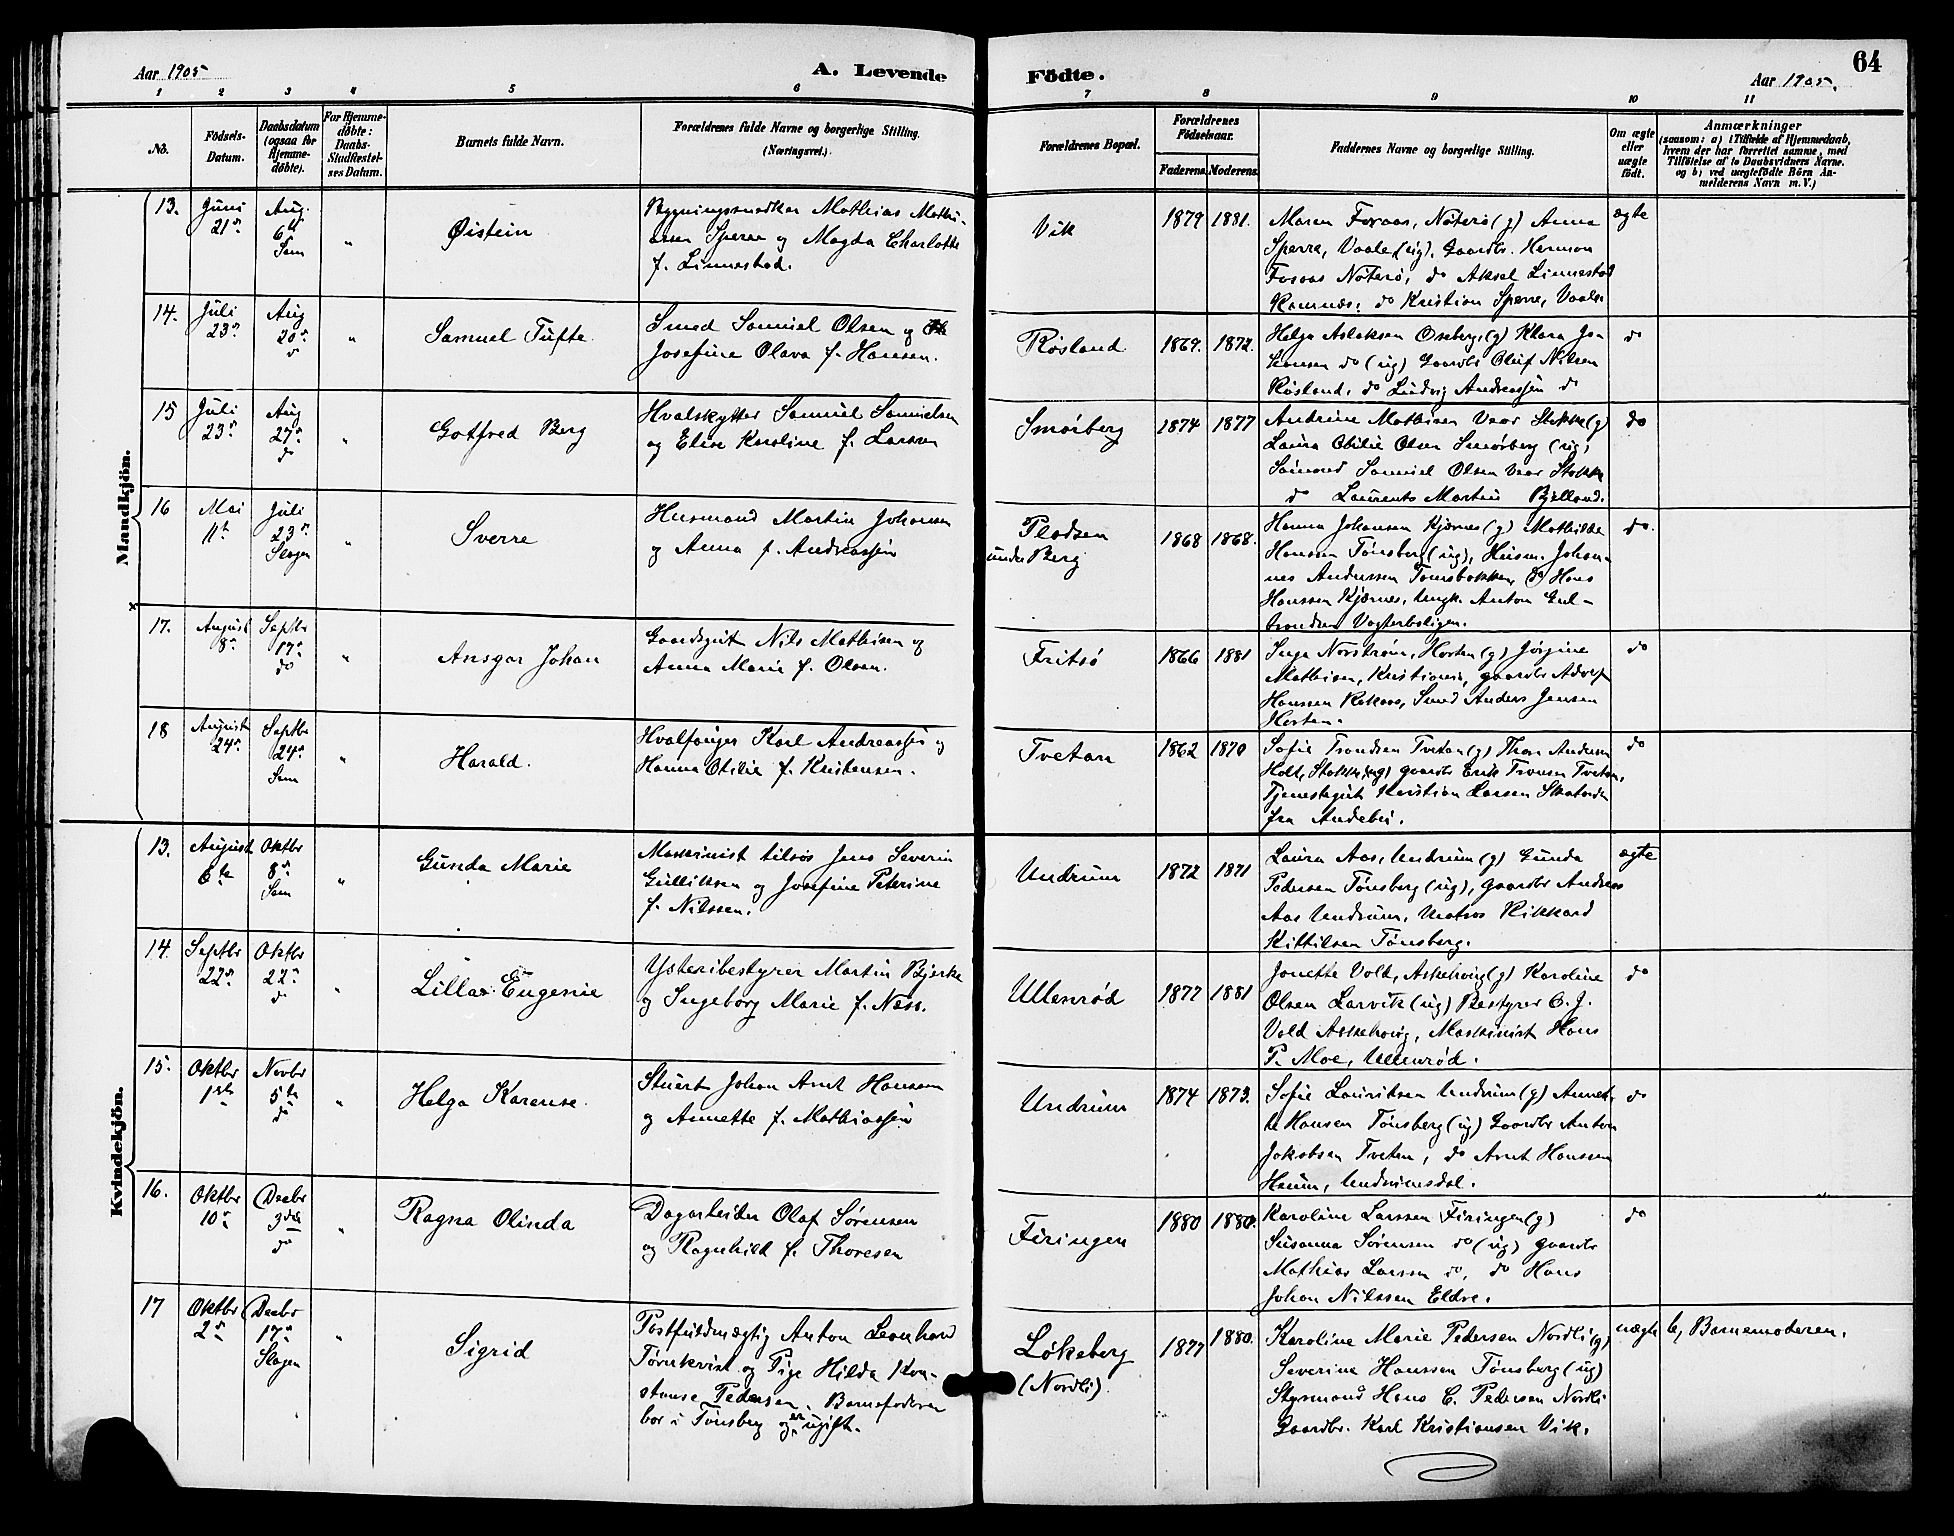 Aar 1905
A. Levende
Födte.
Aar 1905.
64
1 2 3 4 5 6 7 8 9 10 11
No.
Födsels-
Datum.
Daabsdatum
(ogsaa for
Hjemme-
døbte).
For Hjemme-
døbte:
Daabs-
Stadfæstel-
ses Datum.
Barnets fulde Navn.
Forældrenes fulde Navne og borgerlige Stilling.
(Næringsvei.)
Forældrenes Bopæl.
Forældrenes
Födselsaar.
Faderens. Moderens.
Faddernes Navne og borgerlige Stilling.
Om ægte
eller
uægte
født.
Anmærkninger
(saasom: a) i Tilfælde af Hjemmedaab,
hvem der har forrettet samme, med
Tilföielse af to Daabsvidners Navne.
og b) ved uægtefödte Börn An-
melderens Navn m. V.)
Mandkjön.
13.
Juni
21de
Aug.
6te
Sem
"
Øistein
Bygningssnedker Mathias Mathi-
assen Sperre og Magda Charlotte
f. Linnestad.
Vik
1879
1881.
Maren Foraas, Nøterø (g) Anna
Sperre, Vaale (ug). Gaardbr. Herman
Foraas Nøterø, do Aksel Linnestad
Ramnæs, do Kristian Sperre, Vaale
ægte
14.
Juli
23de
Aug
20de
do
"
Samuel Tufte.
Smed Samuel Olsen og
Josefine Olava f. Hansen.
Røsland
1869.
1872.
Helga Aslaksen Oseberg (g) Klara Jo-
hansen do (ug) Gaardbr Oluf Nilsen
Røsland, do Ludvig Andreassen do
do
15
Juli
23de
Aug
27de
do
"
Gotfred Berg
Hvalskytter Samuel Samuelsen
og Elise Karoline f. Larsen
Smørberg
1874
1877
Andrine Mathisen Vear Stokke (g)
Laura Otilie Olsen Smørberg (ug)
Sømand Samuel Olsen Vear Stokke
do Laurents Martin Bjelland.
do
16
Mai
11te
Juli
23de
Slagen
"
Sverre
Husmand Martin Johansen
og Anna f. Andreassen
Pladsen
under Berg
1868
1868.
Hanna Johansen Kjærnes (g) Mathilde
Hansen Tønsberg (ug), Husm. Johan-
nes Andersen Tomsbakken, do Hans
Hanssen Kjærnes, Ungk. Anton Gul-
brandsen Vogterboligen.
do.
17.
August
8de
Septbr
17de
do
"
Ansgar Johan
Gaardsgut Nils Mathisen og
Anna Marie f. Olsen.
Fritsø
1866
1881
Inga Norstrøm, Horten (g) Jørgine
Mathisen, Kristiania, gaardbr Adolf
Hanssen Rakaas, Smed Anders Jensen
Horten.
do
18
August
24de
Septbr
24de
Sem
"
Harald.
Hvalfanger Karl Andreassen og
Hanna Otilie f. Kristensen.
Tvetan
1862
1870
Sofie Trondsen Tvetan (g) Thora Andersen
Holt, Stokke (ug) gaardbr Erik Tronsen Tvetan,
Tjenestegut Kristian Larsen Skatvedt
fra Andebu.
do
Kvindekjön.
13.
August
6te
Oktbr
8de
Sem
"
Gunda Marie
Maskinist tilsøs Jens Severin
Gulliksen og Josefine Peterine
f. Nilssen.
Undrum
1872
1871
Laura Aas, Undrum (g) Gunda
Pedersen Tønsberg (ug), gaardbr Andreas
Aas Undrum, Matros Rikkard
Kittilsen Tønsberg.
ægte
14.
Septbr
22de
Oktbr
22de
do
"
Lilla Eugenie
Ysteribestyrer Martin Bjerke
og Ingeborg Marie f. Næss.
Ullenrød
1877
1881
Jonette Vold, Askehoug (g) Karoline
Olsen Larvik (ug) Bestyrer C. J.
Vold Askehoug, Maskinist Hans
P. Moe, Ullenrød.
do
15.
Oktbr
1ste
Novbr
5te
do
"
Helga Karense.
Stuert Johan Arnt Hansen
og Annette f. Mathiassen
Undrum
1874
1873.
Sofie Lauritsen Undrum (g) Annet-
te Hansen Tønsberg (ug) Gaardbr Anton
Jakobsen Tveten, do Arnt Hanssen
Haum, Undrumsdal.
do
16.
Oktbr
10de
Decbr
3die
do
"
Ragna Olinda
Dagarbeider Olaf Sørensen
og Ragnhild f. Thoresen
Firingen
1880
1880.
Karoline Larssen Firingen (g)
Susanna Sørensen do (ug) gaardbr
Mathias Larssen do, do Hans
Johan Nilssen Eldre.
do
17
Oktbr
2de
Decbr
17de
Slagen
"
Sigrid
Postfuldmægtig Anton Leonhard
Tørnkvist og Pige Hilda Kon-
stanse Pedersen. Barnefaderen
bor i Tønsberg og er ugift.
Løkeberg
(Nordli).
1877
1880.
Karoline Marie Pedersen Nordli (g)
Severine Hanssen Tønsberg (ug)
Styrmand Hans C. Pedersen Nordli
Gaardbr. Karl Kristiansen Vik.
uægte
b, Barnemoderen.